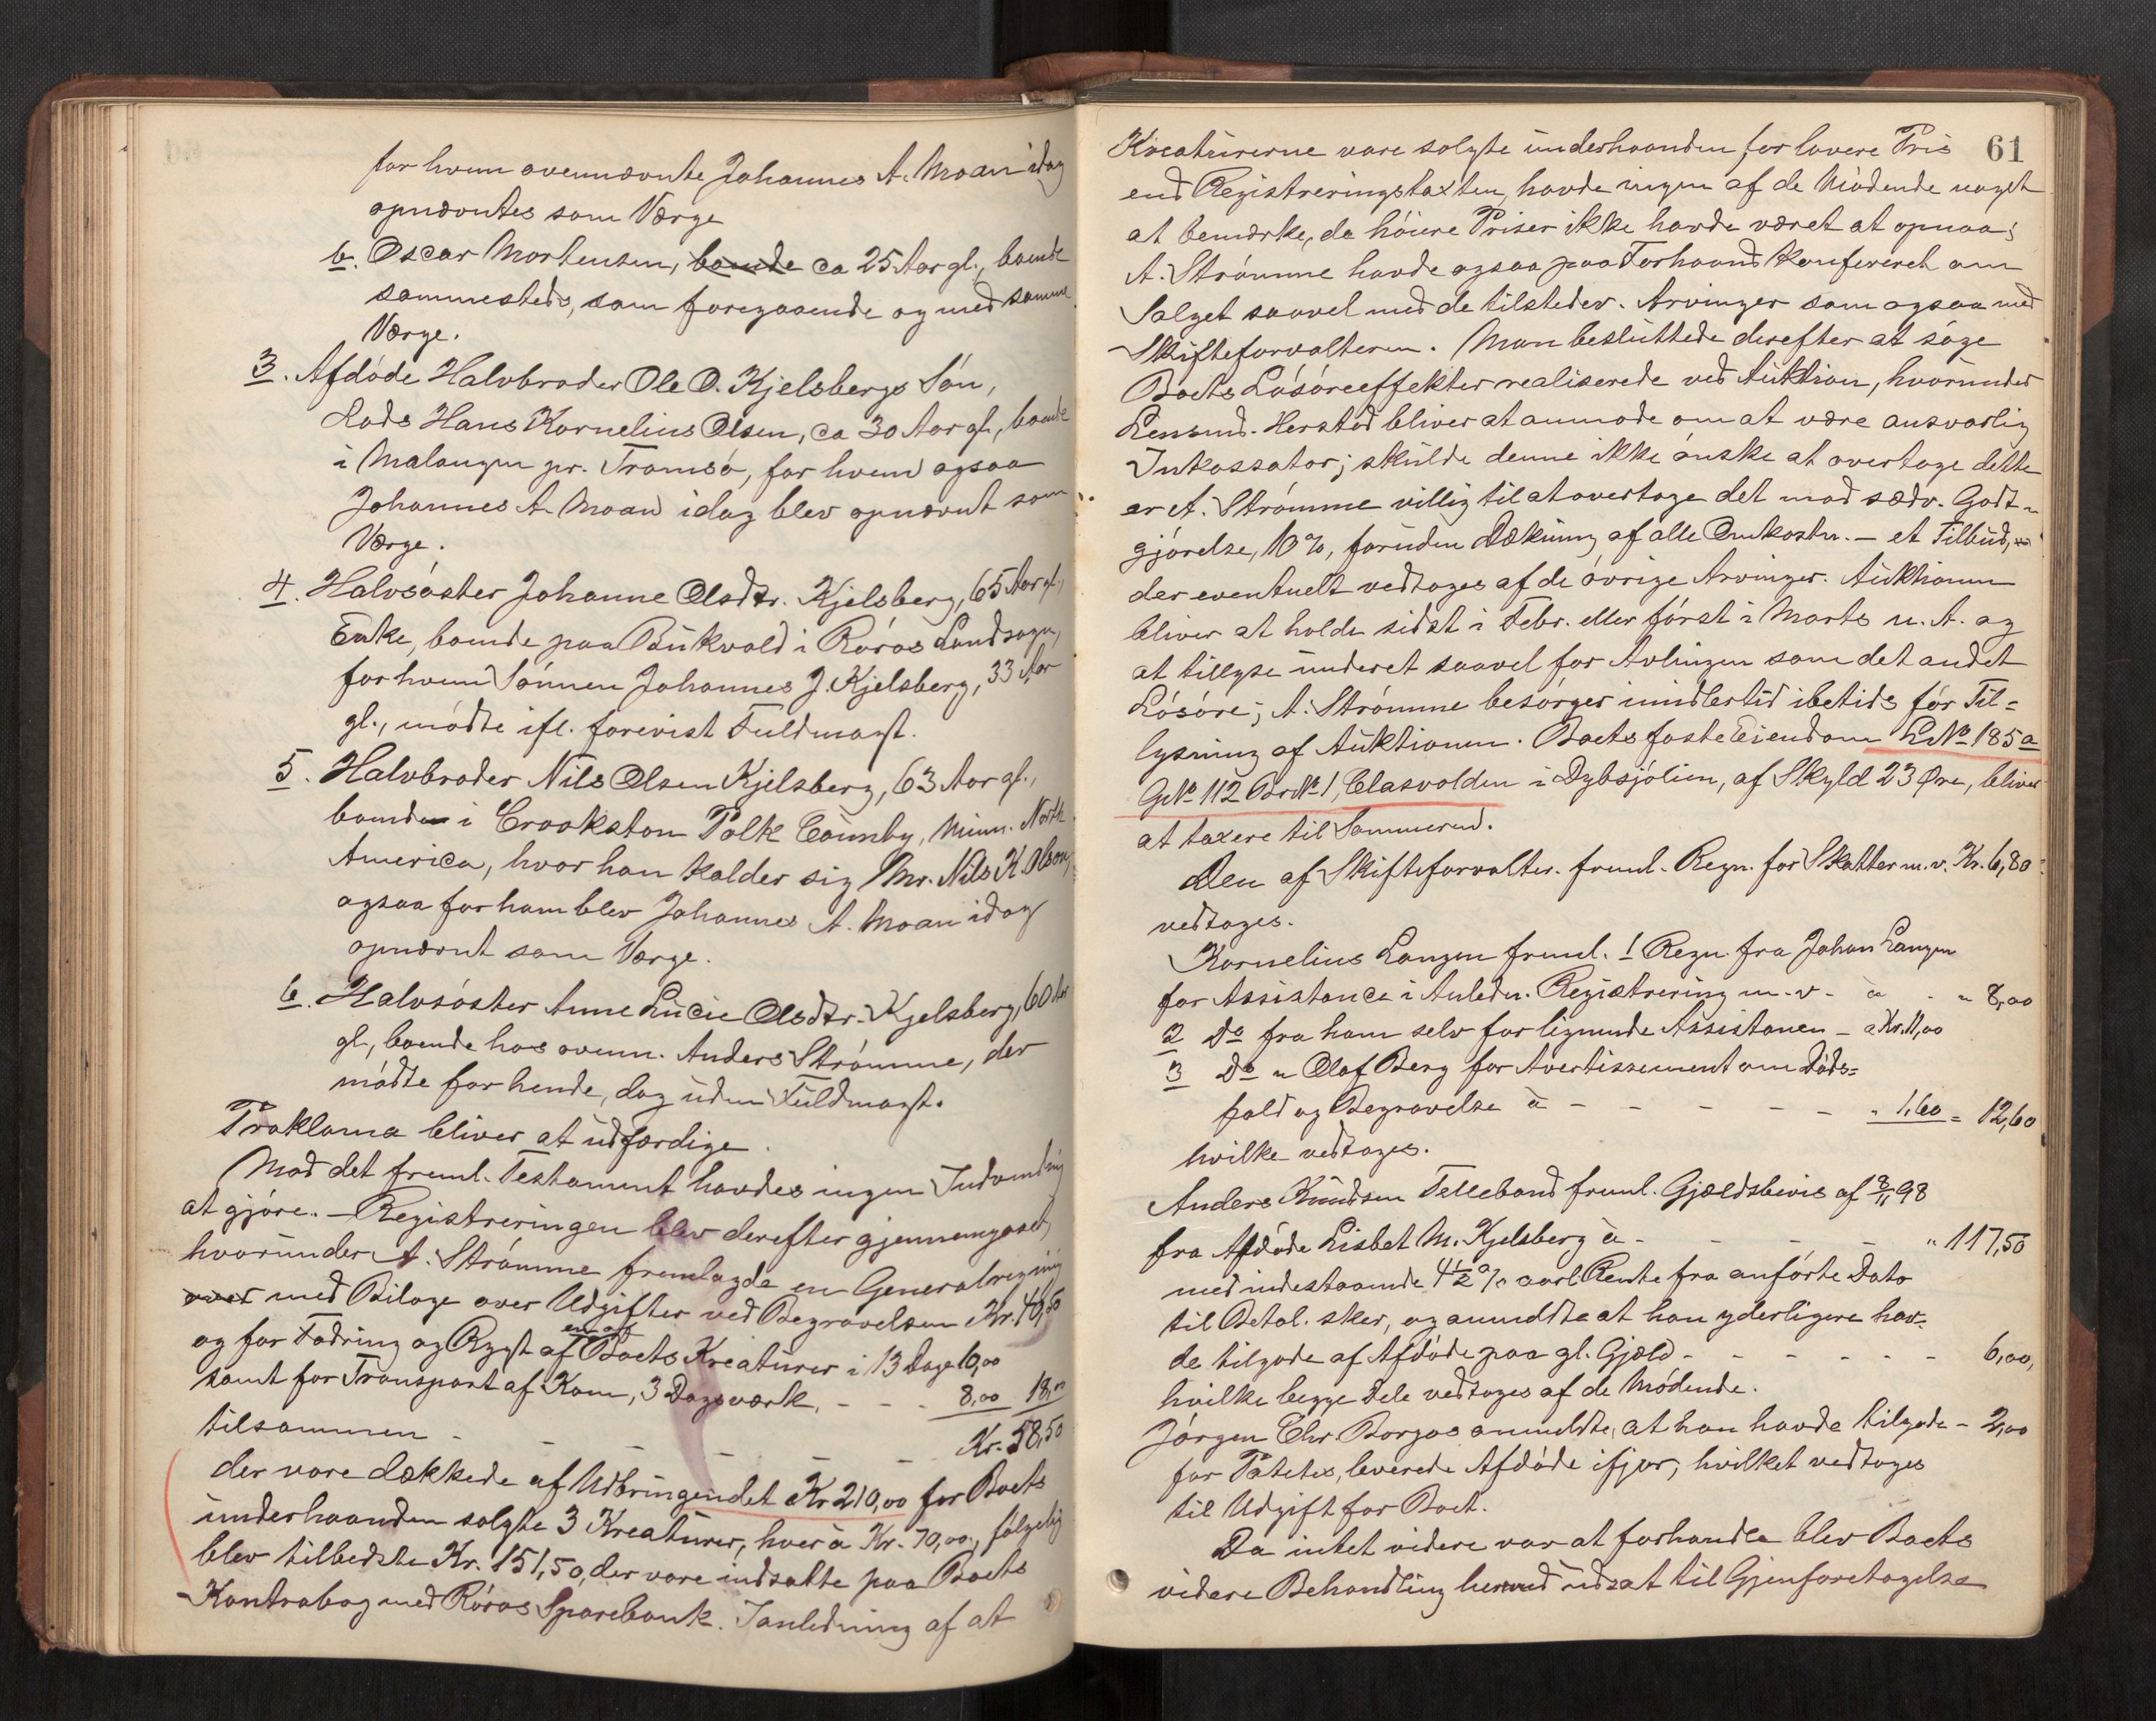 for hvem ovennævnte Johannes A. Moan idag
opnævntes som Værge
b. Oscar Mortensen, boende ca 25 Aar gl., boende
sammesteds, som foregaaende og med samme
Værge.
3. Afdøde Halvbroder Ole O. Kjelsbergs Søn,
Lods Hans Kornelius Olsen, ca 30 Aar gl., boende
i Malangen pr. Tromsø, for hvem ogsaa
Johannes A. Moan idag blev opnævnt som
Værge.
4. Halvsøster Johanne Olsdtr. Kjelsberg, 65 Aar gl.,
Enke, boende paa Bukvold i Røros Landsogn,
for hvem Sønnen Johannes J. Kjelsberg, 33 Aar
gl., mødte ifl. forevist Fuldmagt.
5. Halvbroder Nils Olsen Kjelsberg, 63 Aar gl.,
boende i Crookston Polk County, Minn. North
America, hvor han kalder sig Mr. Nils K. Olson,
ogsaa for ham blev Johannes A. Moan idag
opnævnt som Værge.
6. Halvsøster Anne Lucie Olsdtr. Kjelsberg, 60 Aar
gl., boende hos ovenn. Anders Strømme, der
mødte for hende, dog uden Fuldmagt.
Proklama bliver at udfærdige.
Mod det freml. Testament havdes ingen Indvending
at gjøre. – Registreringen blev derefter gjennemgaaet,
hvorunder A. Strømme fremlagde en Generalregning
over med Bilage over Udgifter ved Begravelsen Kr. 40,50
og for Fodring og Røgt af en af Boets Kreaturer i 13 Dage 10,00
samt for Transport af Korn, 3 Dagsværk, - - - 8,00 18,00
tilsammen - - - - - - Kr. 58,50
der vare dækkede af Udbringendet Kr 210,00 for Boets
underhaanden solgte 3 Kreaturer, hver à Kr. 70,00, følgelig
blev tilbedste Kr. 151,50, der vare indsatte paa Boets
Kontrabog med Røros Sparebank. I anledning af at
61
Kreaturerne vare solgte underhaanden for lavere Pris
end Registreringstaxten, havde ingen af de Mødende noget
at bemærke, da høiere Priser ikke havde været at opnaa;
A. Strømme havde ogsaa paa Forhaand konfereret om
Salget saavel med de tilstedev. Arvinger som ogsaa med
Skifteforvalteren. Man besluttede derefter at søge
Boets Løsøreeffekter realiserede ved Auktion, hvorunder
Lensmd. Herstad bliver at anmode om at være ansvarlig
Inkassator; skulde denne ikke ønske at overtage dette
er A. Strømme villig til at overtage det mod sædv. Godt-
gjørelse, 10%, foruden Dækning af alle Omkostn. – et Tilbud,
der eventuelt vedtages af de øvrige Arvinger. Auktionen
bliver at holde sidst i Febr. eller først i Marts n. A. og
at tillyse underet saavel for Avlingen som det andet
Løsøre; A. Strømme besørger imidlertid ibetids før Til-
lysning af Auktionen. Boets faste Eiendom LNo 185a
GNo 112 BrNo 1, Elasvolden i Dybsjølien, af Skyld 23 Øre, bliver
at taxere til Sommeren.
Den af Skifteforvalter. freml. Regn. for Skatter m.v. Kr. 6,80
vedtages.
Kornelius Langen freml. 1 Regn. fra Johan Langen
for Assistance i Anledn. Registrering m.v. à - " 8,00
2 Do fra ham selv for lignende Assistancen – a Kr. 11,00
3 Do " Olof Berg for Avertissement om Døds-
fald og Begravelse à - - - - - " 1,60 = 12,60
hvilke vedtages.
Anders Knudsen Tellebond freml. Gjældsbevis af 8/11 98
fra Afdøde Lisbet M. Kjelsberg à - - - - " 117,50
med indestaaende 4 1/2 % aarl. Rente fra anførte Dato
til Betal. sker, og anmeldte at han yderligere hav-
de tilgode af Afdøde paa gl. Gjæld - - - - - - 6,00,
hvilke begge Dele vedtages af de Mødende.
Jørgen Chr. Borgos anmeldte, at han havde tilgode - 2,00
for Potetes, leverede Afdøde ifjor, hvilket vedtoges
til Udgift for Boet.
Da intet videre var at forhandle blev Boets
videre Behandling herved udsat til Gjenforetagelse